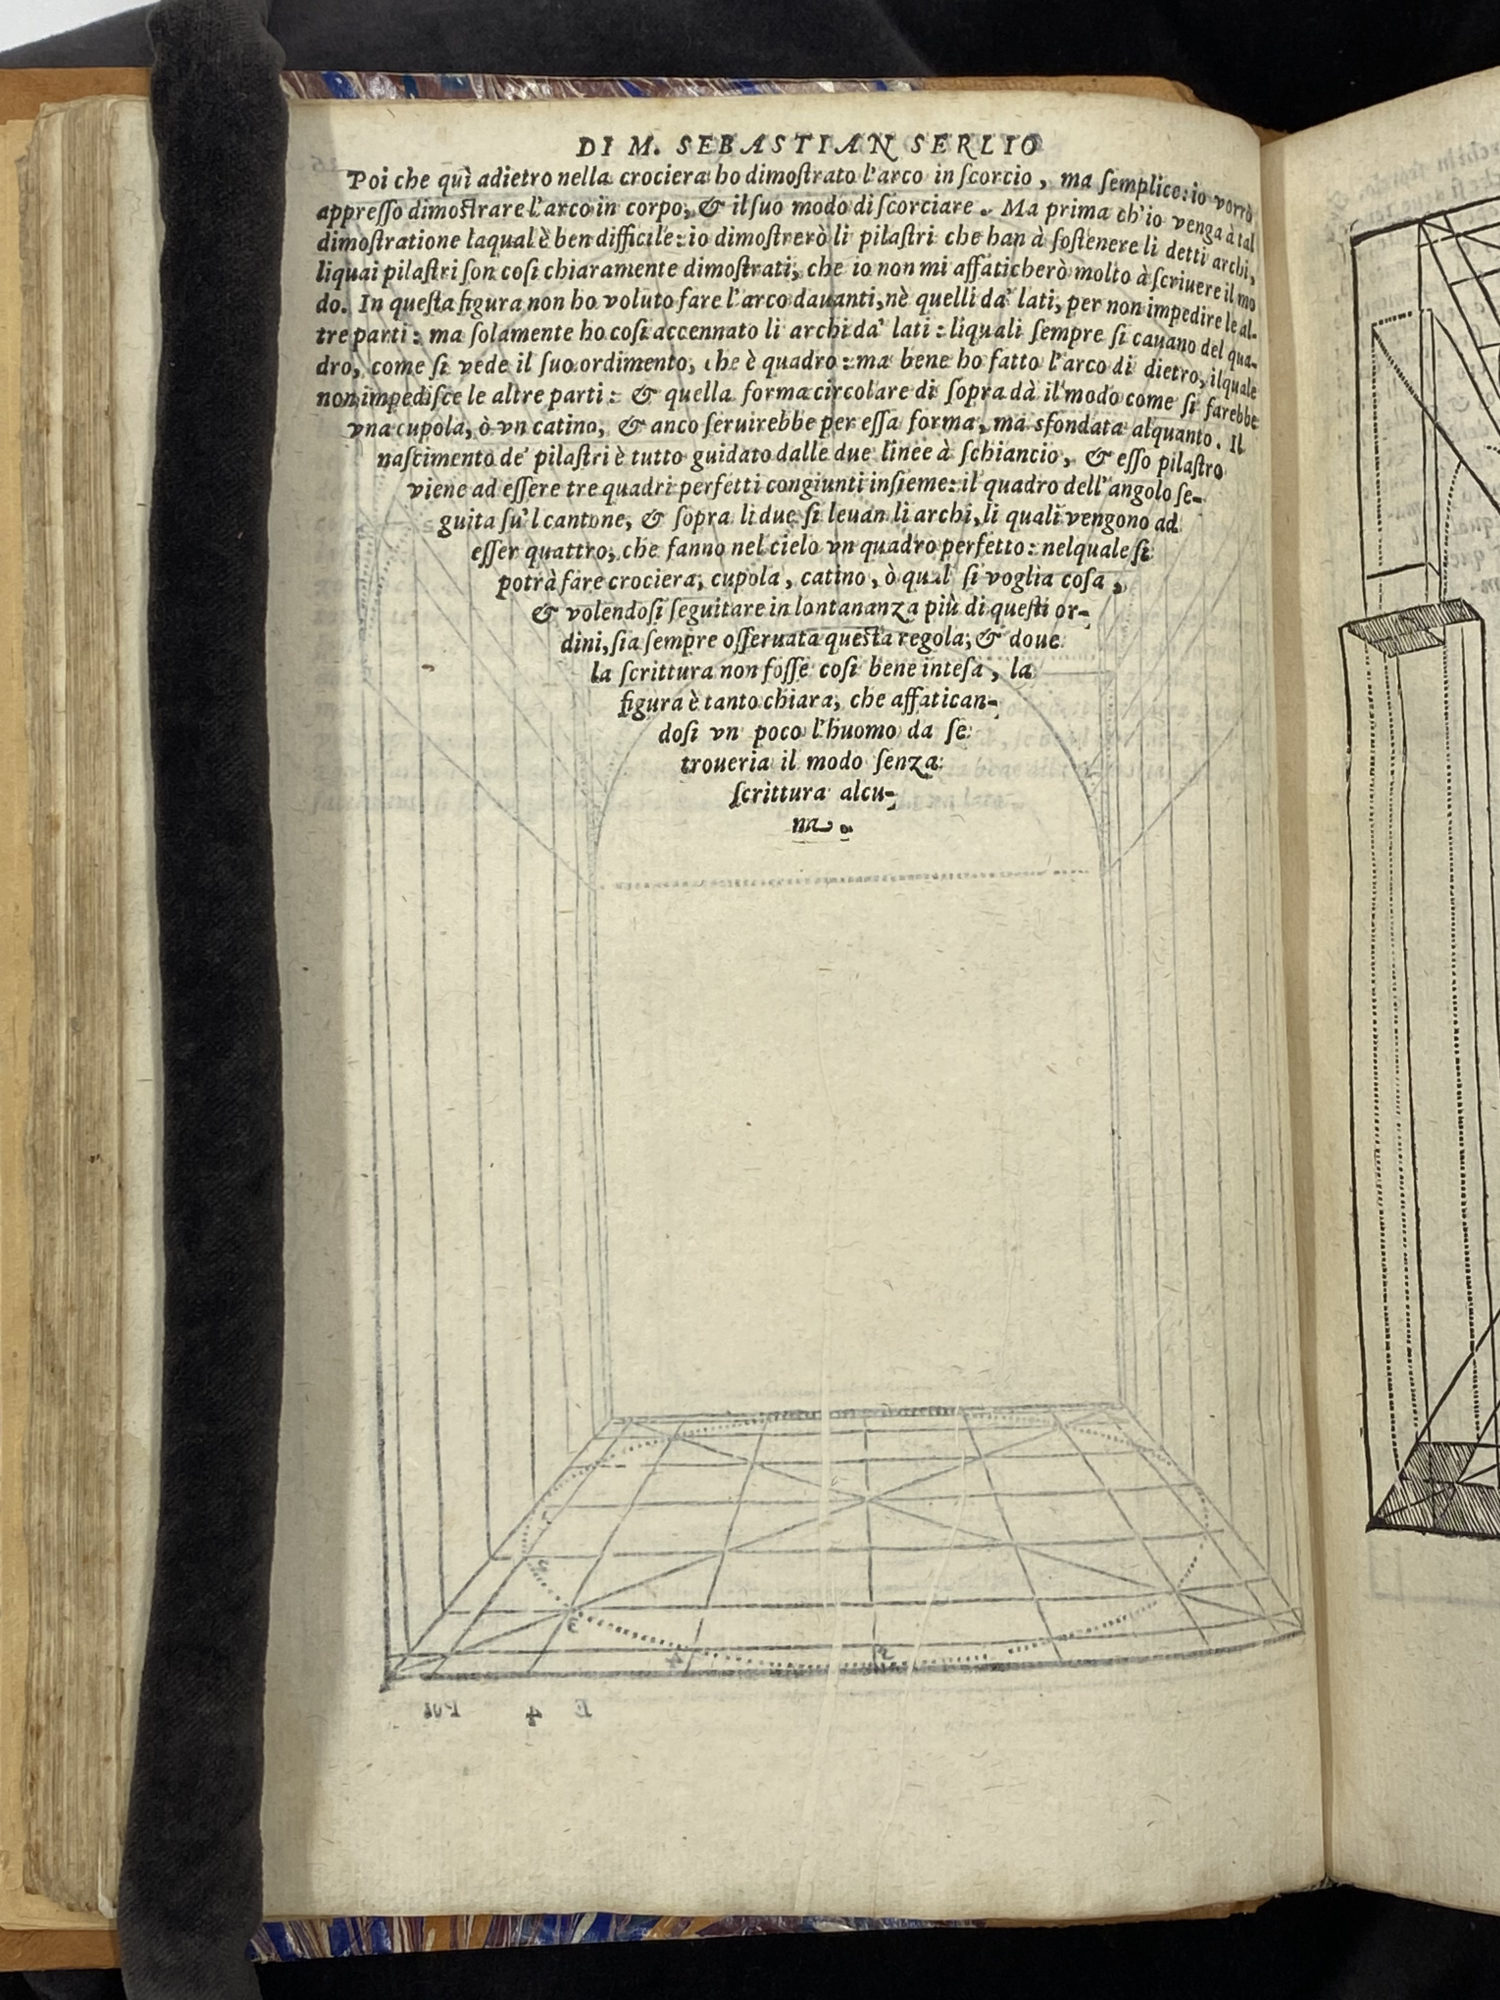 DI M. SEBASTIAN SERLIO
Poi che quì adietro nella crociera ho dimoſtrato l'arco in ſcorcio, ma ſemplice: io vorrò
appreſſo dimoſtrare l'arco in corpo, & il ſuo modo di ſcorciare. Ma prima ch'io venga à tal
dimoſtratione laqual è ben difficile: io dimoſtrerò li pilaſtri che han à ſoſtenere li detti archi,
liquai pilaſtri ſon coſi chiaramente dimoſtrati, che io non mi affaticherò molto à ſcriuere il mo
do. In queſta figura non ho voluto fare l'arco dauanti, nè quelli da' lati, per non impedire le al-
tre parti: ma ſolamente ho coſi accennato li archi da' lati: liquali ſempre ſi cauano del qua-
dro, come ſi vede il ſuo ordimento, che è quadro: ma bene ho fatto l'arco di dietro, ilquale
non impediſce le altre parti: & quella forma circolare di ſopra dà il modo come ſi farebbe
vna cupola, ò vn catino, & anco ſeruirebbe per eſſa forma, ma sfondata alquanto. Il
naſcimento de' pilaſtri è tutto guidato dalle due linee à ſchiancio, & eſſo pilaſtro
viene ad eſſere tre quadri perfetti congiunti inſieme: il quadro dell'angolo ſe-
guita ſu'l cantone, & ſopra li due ſi leuan li archi, li quali vengono ad
eſſer quattro, che fanno nel cielo vn quadro perfetto: nelquale ſi
potrà fare crociera, cupola, catino, ò qual ſi voglia coſa,
& volendoſi ſeguitare in lontananza più di queſti or-
dini, ſia ſempre oſſeruata queſta regola, & doue
la ſcrittura non foſſe coſi bene inteſa, la
figura è tanto chiara, che affatican-
doſi vn poco l'huomo da ſe
troueria il modo ſenza
ſcrittura alcu-
na.